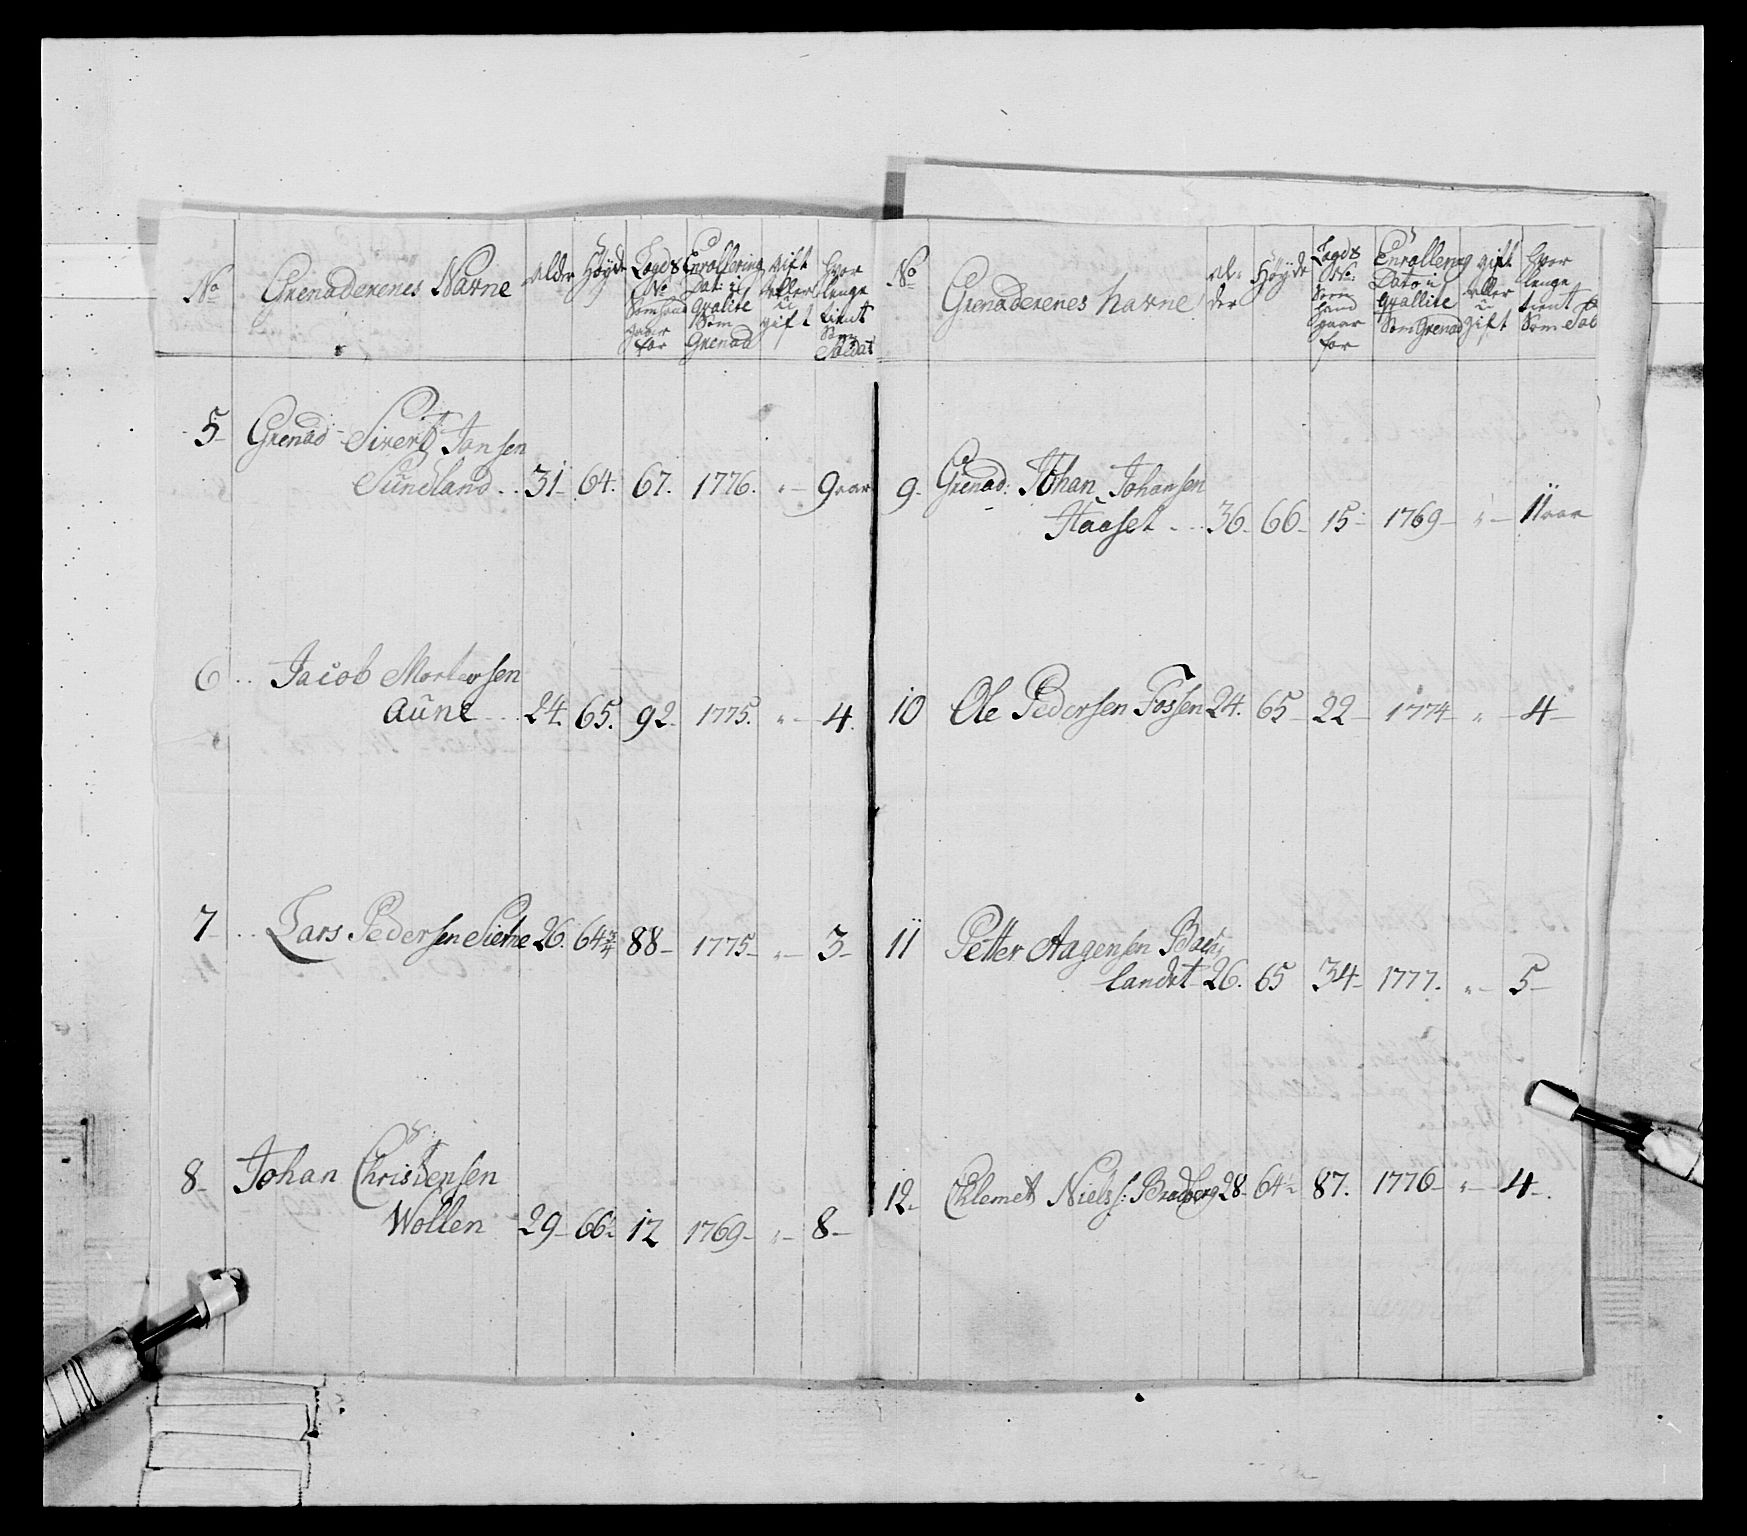 No
Grenaderenes Navne
alder
Höyde
Lægds
No
Som hand
gaar
for
Enrollering
Dat: i
qvalite
Som
Grenad
gift
eller
u
gift
hvor
lenge
tient
Som
Soldat
5 Grenad Sivert Jonsen
Sundland .. 31 64. 67. 1776. " 9 aar
6 .. Jacob Mortensen
Aune .. 24. 65. 92. 1775. " 4
7 .. Lars Pedersen 26. 64 3/4 88 1775 " 3
8 Johan Christensen
Wollen 29 66 12 1769 " 8
No
Grenaderenes navne
al-
der
Höyde
Lægds
No
Som
hand
gaar
for
Enrollering
Dato i
qvallite
Som Grenad
gift
eller
u
gift
hvor
lenge
tient
Som Sol
9. Grenad: Johan Johansen
Haaset .. 36. 66 15 1769 " 11 aar
10 Ole Pedersen Fossen 24. 65 22 1774 " 4
11 Petter Aagensen
landet 26. 65 34 1777. " 5
12 Chlemet Niels: Bradberg 28 64 87. 1776 " 4